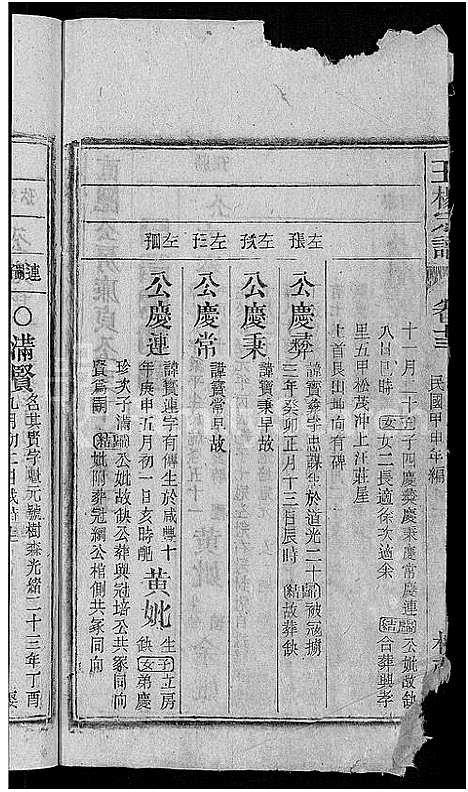 民國甲申年編
十一月二十
子四慶彝慶秉慶常慶連
公妣故缺
八日巳時
女二長適徐次適余
合葬興孝
里五甲松茂沖上汪莊屋
上首艮山坤向有碑
左張
公慶彝
諱寶彝字忠謀生於道光二十
被冦擄
三年癸卯正月十三日辰時
故葬缺
左孜
公慶秉
諱寶秉早故
左
公慶常
諱寶常早故
左
公慶連
諱寶連字有傳生於咸豐十
年庚申五月初一日亥時
黃妣
生
子
立房
缺
女
弟慶
珍次子滿
公妣故缺公葬興冠培公共冢同向
賢為嗣
妣附葬冠綱公棺側共冢同向
連
滿賢
名其賢字魁元號樹森光緒二十三年丁酉
九月初二日戌時生